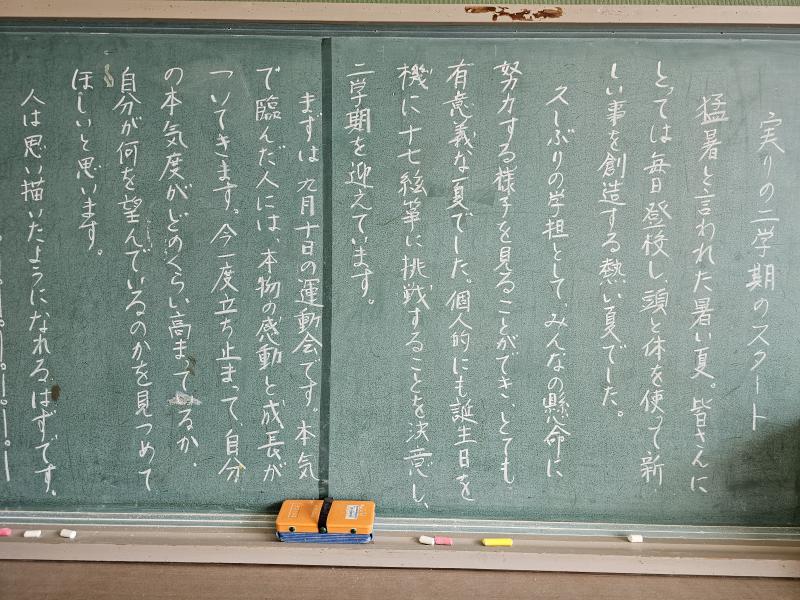 実りの二学期のスタート
猛暑と言われた暑い夏。皆さんに
とっては毎日登校し、頭と体を使って新
しい事を創造する熱い夏でした。
久しぶりの学担として、みんなの懸命に
努力する様子を見ることができ、とても
有意義な夏でした。個人的にも誕生日を
機に十七絃箏に挑戦することを決意し、
二学期を迎えています。
まずは九月十日の運動会です。本気
で臨んだ人には、本物の感動と成長が
ついてきます。今一度立ち止まって、自分
の本気度がどのくらい高まてるか、
自分が何を望んでいるのかを見つめて
ほしいと思います。
人は思い描いたようになれるはずです、